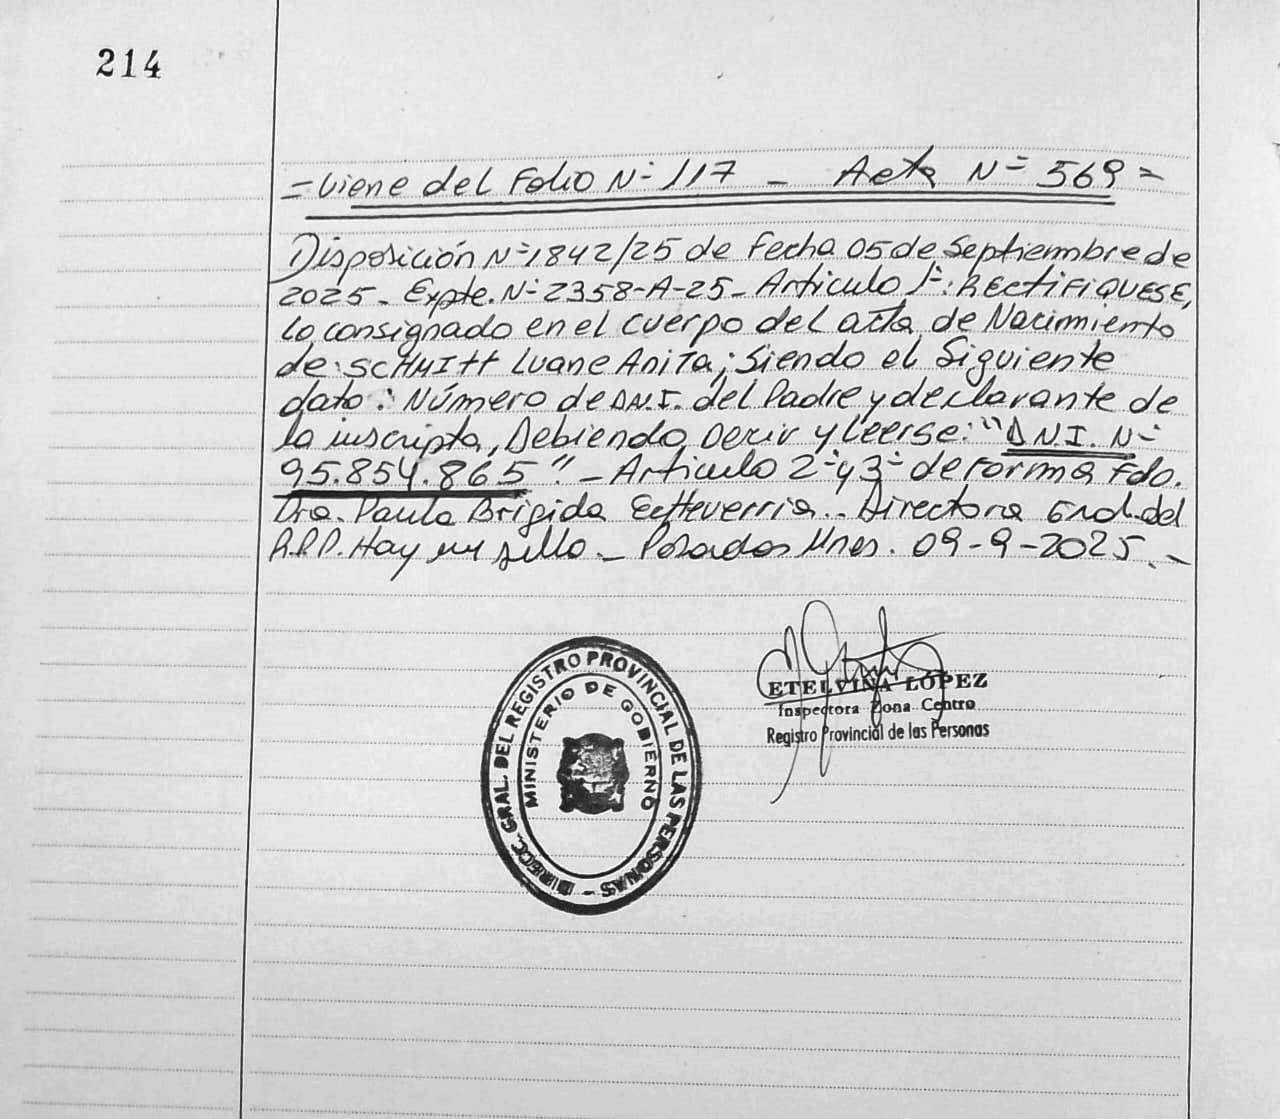 214
= Viene del Folio Nº 117 - Acta Nº 569 =
Disposición Nº 1842/25 de Fecha 05 de Septiembre de
2025_ Expte. Nº 2358-A-25_ Articulo 1º: RECTIFIQUESE,
lo consignado en el cuerpo del acta de Nacimiento
de: SCHMITT Luane Anita; Siendo el Siguiente
dato: Número de D.N.I. del Padre y declarante de
la inscripta, Debiendo Decir y Leerse: "D.N.I. Nº
95.854.865". _ Articulo 2º y 3º de Forma Fdo.
Dra. Paula Brigida Echeverria.. Directora Gral. del
R.P.P. Hay un sello._ Posadas Mnes. 09-9-2025._
DIRECC. GRAL. DEL REGISTRO PROVINCIAL DE LAS PERSONAS -
MINISTERIO DE GOBIERNO
ETELVINA LOPEZ
Inspectora Zona Centro
Registro Provincial de las Personas